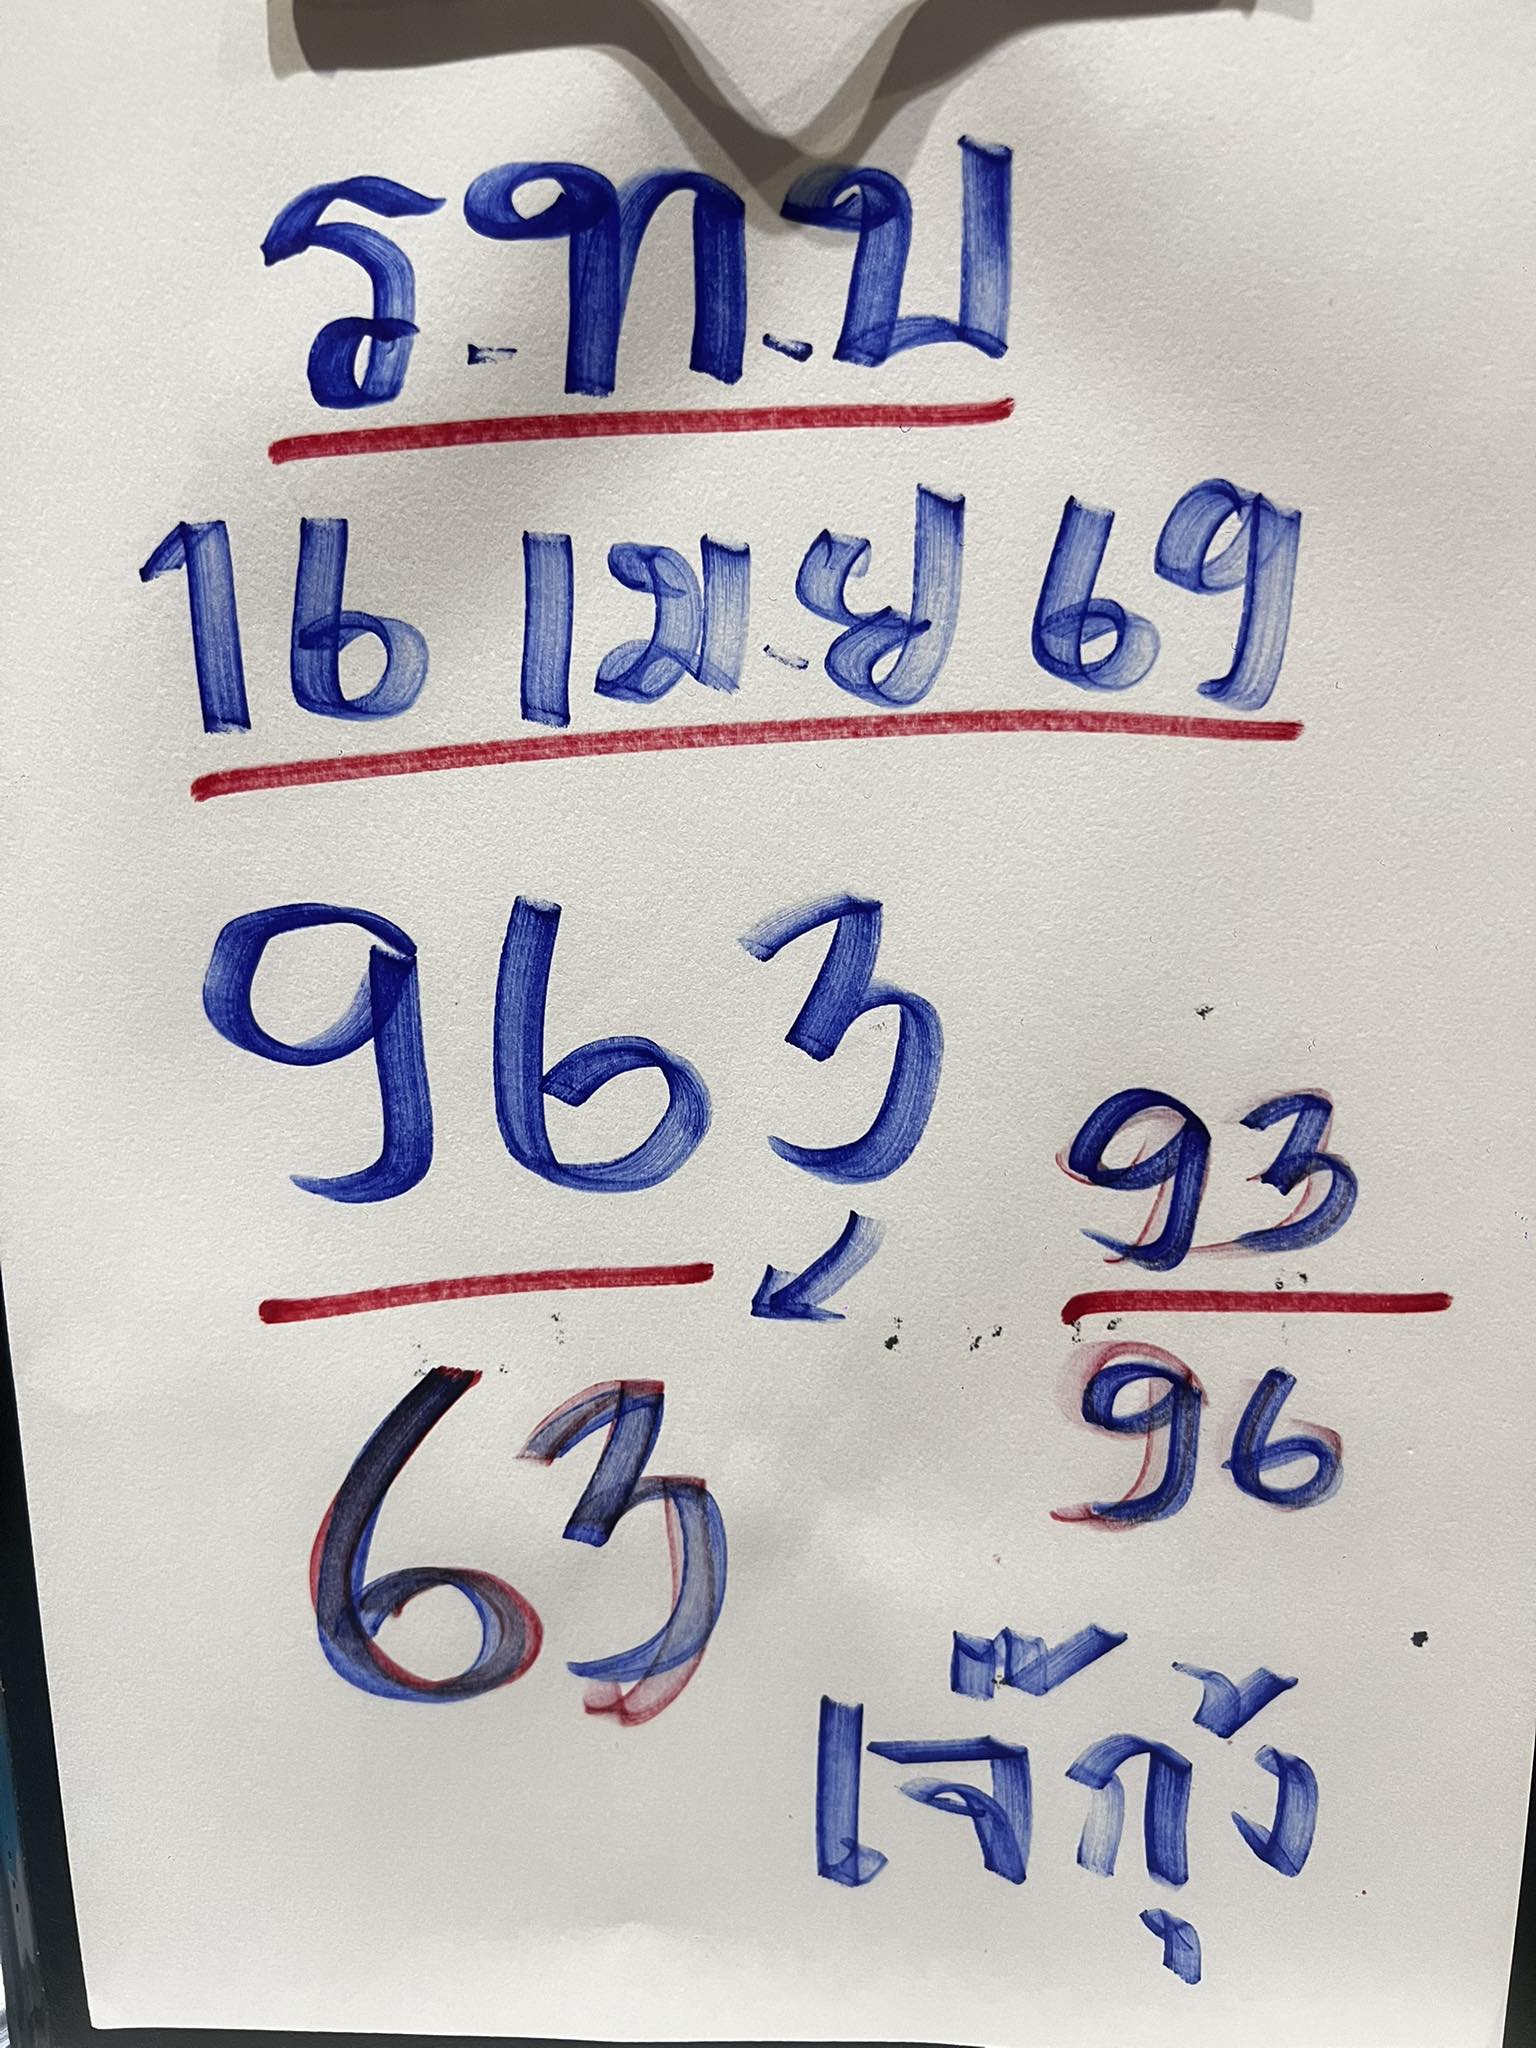 ร.ท.บ
16 เม.ย 69
963
93
63
96
เจ๊กุ้ง